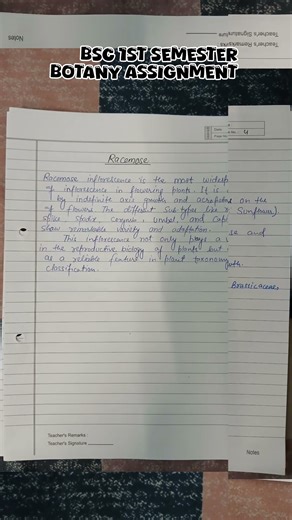 BSC 1ST SEMESTER
BOTANY ASSIGNMENT
Teacher's Signature
Teacher's Remarks
Notes
Date
Page No. 4
Racemose
Racemose inflorescence is the most widesp
of inflorescence in flowering plants. It is
by indefinite axis growth and acropetal on the
of flowers. The different Sub types like
spike, spadix, corymb, umbel, and
show remarkable variety and adaptation. and
This inflorescence not only plays a
in the reproductive biology of plants but
as a reliable feature in plant taxonomy
classification.
Brassicaceae
Teacher's Remarks :
Teacher's Signature
Notes